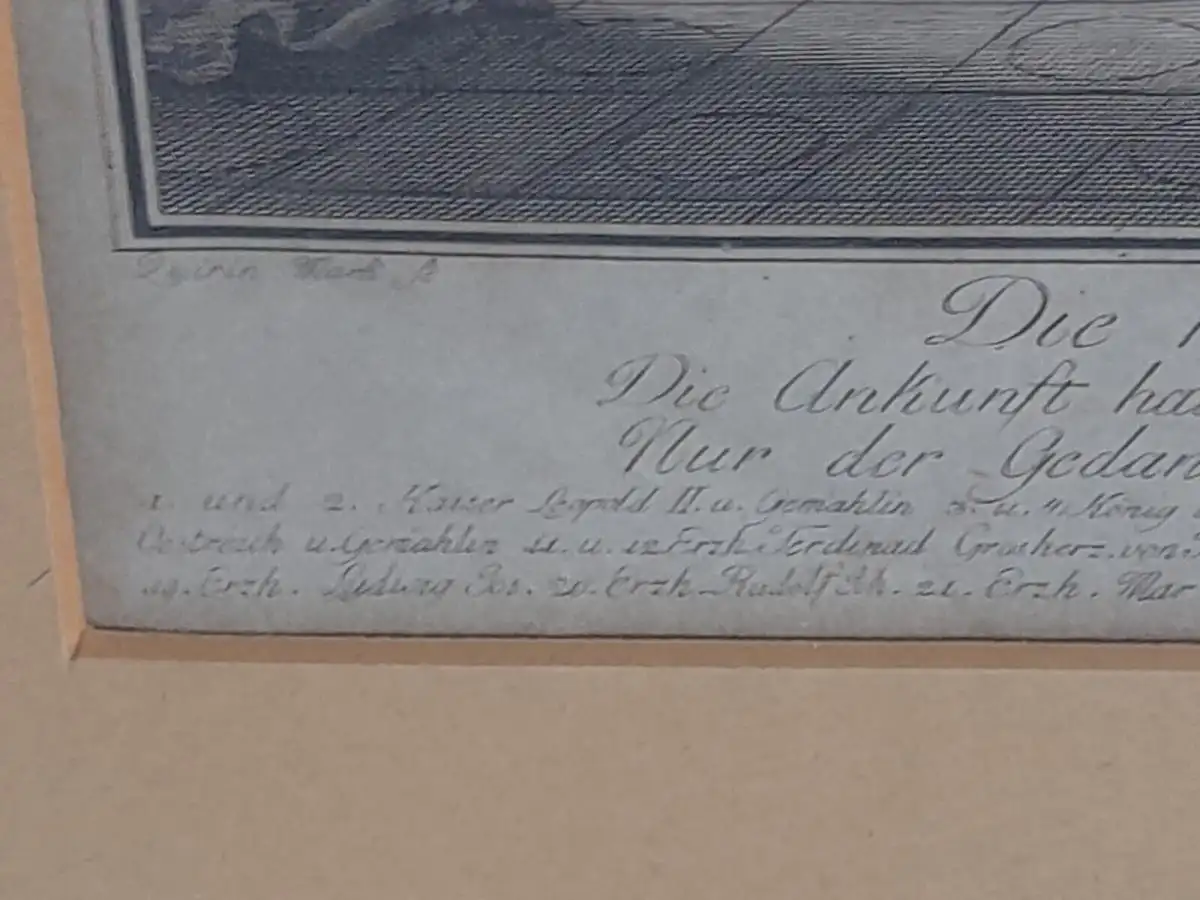 Quirin Mark f.
Die
Die Ankunft ha
Nur der Gedan
1. und 2. Kaiser Leopold II. u. Gemahlin 3. u. 4. König
Oestreich u. Gemahlin 11. u. 12 Erzh. Ferdinad Grosherz. von
19. Erzh. Ludwig Jos. 20. Erzh. Rudolf 21. Erzh. Mar